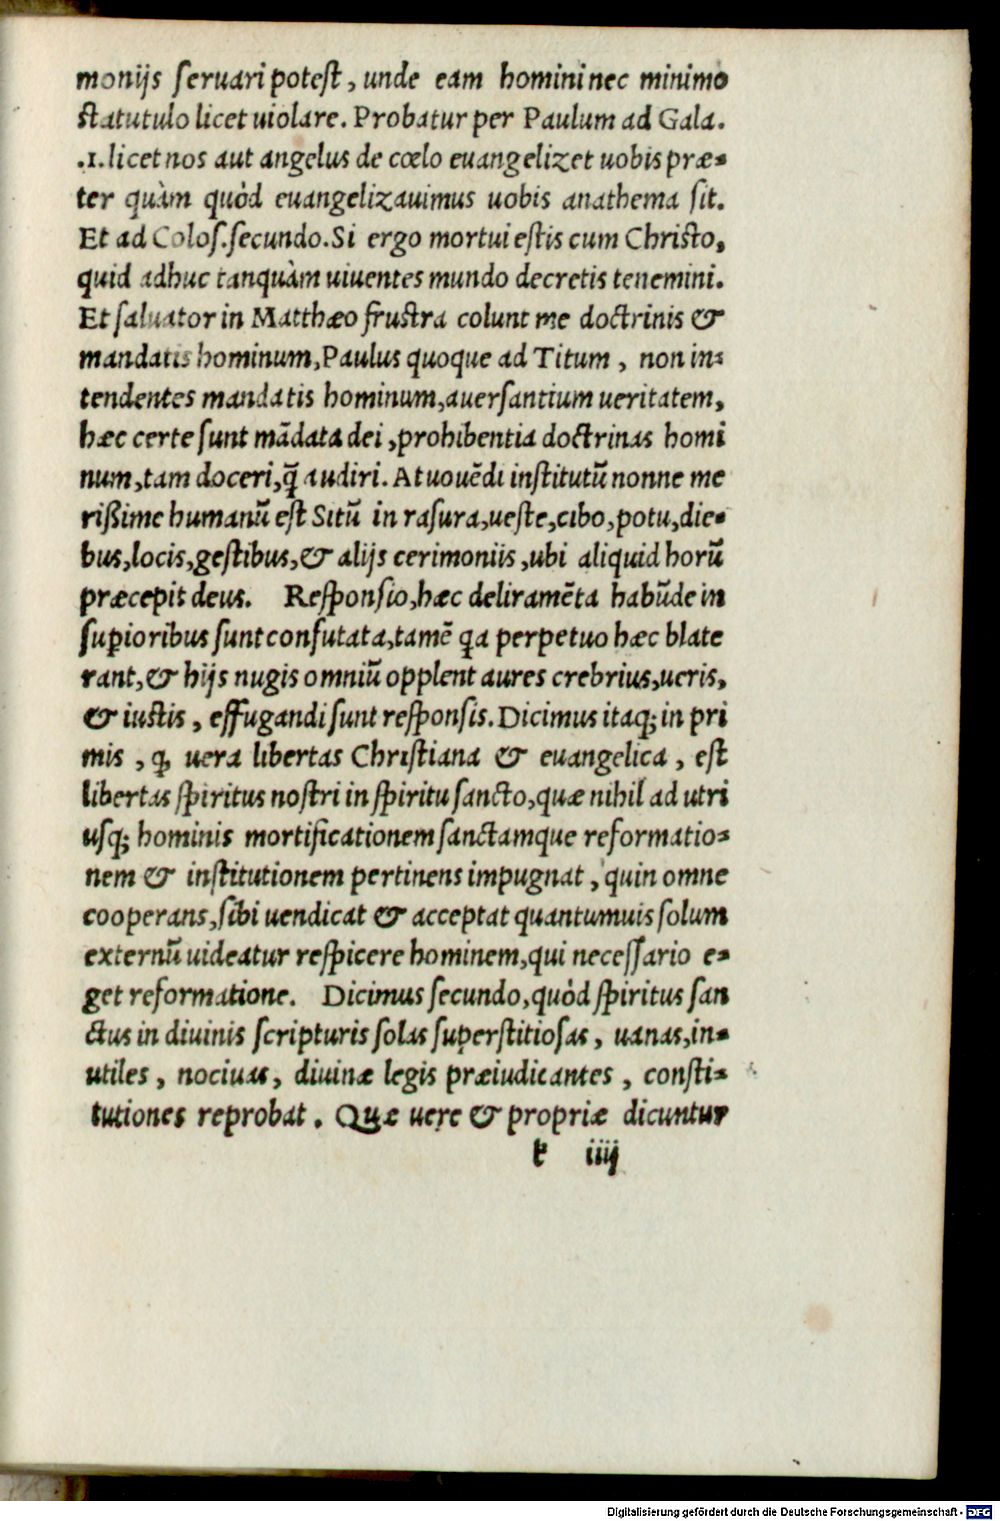 monijs ſeruari poteſt, unde eam homini nec minimo
ſtatutulo licet uiolare. Probatur per Paulum ad Gala.
.1. licet nos aut angelus de cœlo euangelizet uobis præ-
ter quàm quòd euangelizauimus uobis anathema ſit.
Et ad Coloſ. ſecundo. Si ergo mortui eſtis cum Chriſto,
quid adhuc tanquàm uiuentes mundo decretis tenemini.
Et ſaluator in Matthæo fruſtra colunt me doctrinis &
mandatis hominum, Paulus quoque ad Titum, non in-
tendentes mandatis hominum, auerſantium ueritatem,
hæc certe ſunt mādata dei, prohibentia doctrinas homi
num, tam doceri, ꝗ̃ audiri. At uouēdi inſtitutū nonne me
rißime humanū eſt Sitū in raſura, ueſte, cibo, potu, die-
bus, locis, geſtibus, & alijs cerimoniis, ubi aliquid horū
præcepit deus. Reſponſio, hæc deliramēta habūde in
ſuꝑioribus ſunt confutata, tamē ꝗa perpetuo hæc blate
rant, & hijs nugis omniū opplent aures crebrius, ueris,
& iuſtis, effugandi ſunt reſponſis. Dicimus itaqꝫ in pri
mis, ꝙ uera libertas Chriſtiana & euangelica, eſt
libertas ſpiritus noſtri in ſpiritu ſancto, quæ nihil ad utri
uſqꝫ hominis mortificationem ſanctamque reformatio-
nem & inſtitutionem pertinens impugnat, quin omne
cooperans, ſibi uendicat & acceptat quantumuis ſolum
externū uideatur reſpicere hominem, qui neceſſario e-
get reformatione. Dicimus ſecundo, quòd ſpiritus ſan
ctus in diuinis ſcripturis ſolas ſuperſtitioſas, uanas, in-
utiles, nociuas, diuinæ legis præiudicantes, conſti-
tutiones reprobat. Quæ uere & propriæ dicuntur
k iiij
Digitalisierung gefördert durch die Deutsche Forschungsgemeinschaft - DFG